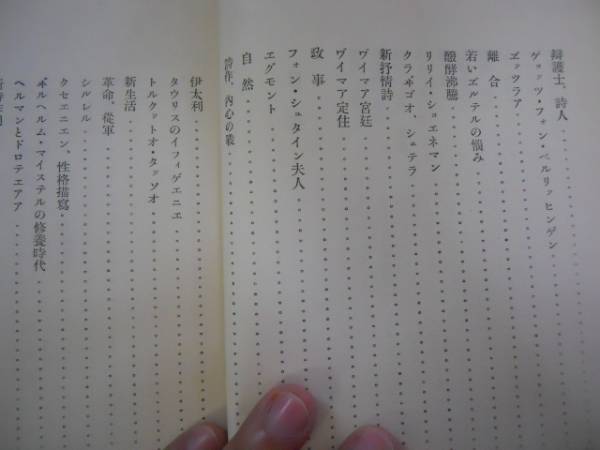 辯護士、詩人
ゲョッツ・フォン・ベルリッヒンゲン
ヱッツラア
離合
若いヱルテルの惱み
醱酵沸騰
リリイ・ショエネマン
新抒情詩
クラヸゴオ、シュテラ
ヴイマア宮廷
ヴイマア定住
政事
フォン・シュタイン夫人
エグモント
自然
詩作、內心の戰
伊太利
タウリスのイフィゲエニエ
トルクットオ・タッソオ
新生活
革命、從軍
シルレル
クセエニエン、性格描寫
ヰルヘルム・マイステルの修養時代
ヘルマンとドロテエアア